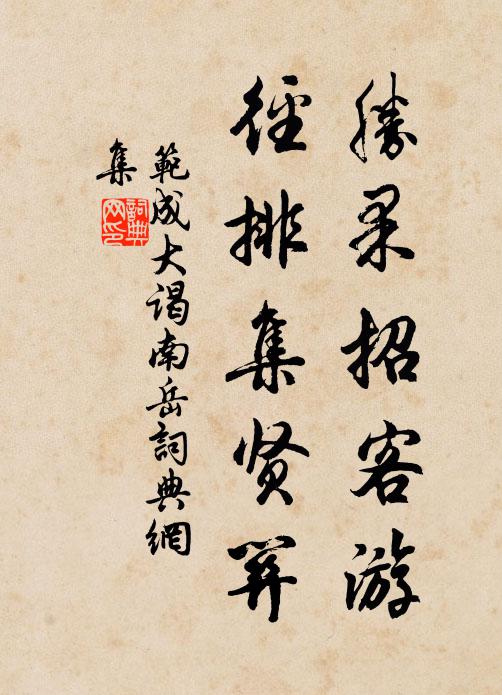 勝果招客游
徑排集贤關
範成大謁南岳詞典網
集
詞典
网印